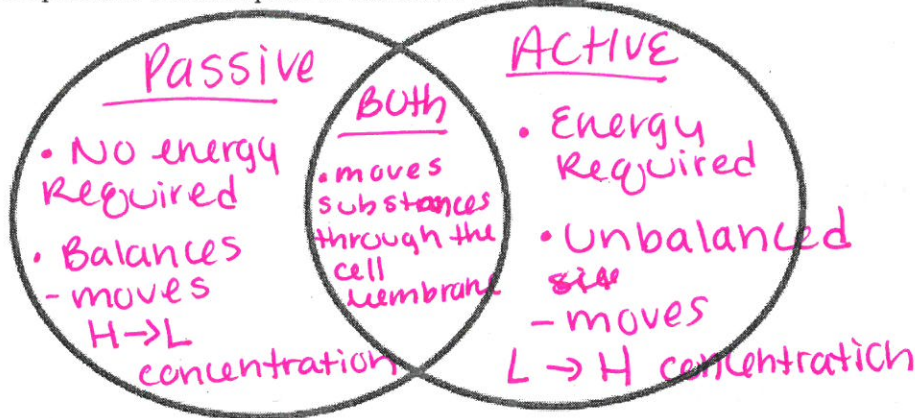 Passive
• No energy
Required
• Balances
- moves
H→L
concentration
Both
• moves
substances
through the
cell
membrane
ACTIVE
• Energy
Required
• Unbalanced
- moves
L → H concentration